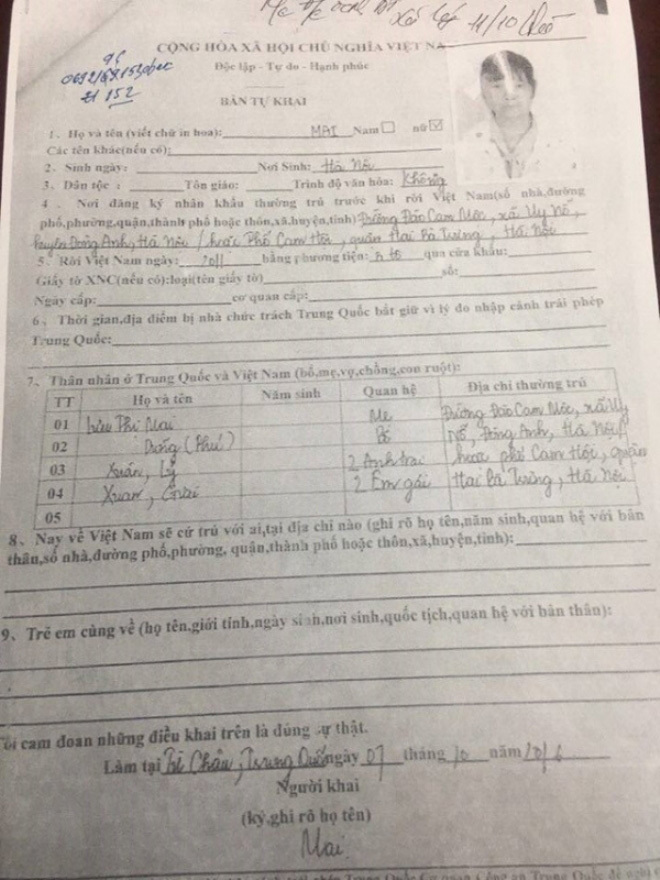 11/10
CỘNG HÒA XÃ HỘI CHỦ NGHĨA VIỆT NA
Độc lập - Tự do - Hạnh phúc
152
BẢN TỰ KHAI
1、Họ và tên (viết chữ in hoa): MAI Nam☐ nữ☑
Các tên khác(nếu có):
2、Sinh ngày: Nơi Sinh: Hà Nội
3、Dân tộc : Tôn giáo: Trình độ văn hóa: Không
4 、Nơi đăng ký nhân khẩu thường trú trước khi rời Việt Nam(số nhà,đường
phố,phường,quận,thành phố hoặc thôn,xã,huyện,tỉnh) Đường Đào Cam Mộc, xã Uy Nỗ,
huyện Đông Anh, Hà Nội / hoặc Phố Cam Hội, quận Hai Bà Trưng, Hà Nội
5、Rời Việt Nam ngày: 2011 bằng phương tiện: ô tô qua cửa khẩu:
Giấy tờ XNC(nếu có):loại(tên giấy tờ) số:
Ngày cấp: cơ quan cấp:
6、Thời gian,địa điểm bị nhà chức trách Trung Quốc bắt giữ và lý do nhập cảnh trái phép
Trung Quốc:
7、Thân nhân ở Trung Quốc và Việt Nam (bố,mẹ,vợ,chồng,con ruột):
TT Họ và tên Năm sinh Quan hệ Địa chỉ thường trú
01 Lưu Thi Mai Mẹ Đường Đào Cam Mộc, xã Uy
02 Dương (Phú) Bố Nỗ, Đông Anh, Hà Nội /
03 Xuân, Lý 2 Anh trai hoặc phố Cam Hội, quận
04 Xuan, 2 Em gái Hai Bà Trưng, Hà Nội
05
8、Nay về Việt Nam sẽ cư trú với ai,tại địa chỉ nào (ghi rõ họ tên,năm sinh,quan hệ với bản
thân,số nhà,đường phố,phường, quận,thành phố hoặc thôn,xã,huyện,tỉnh):
9、Trẻ em cùng về (họ tên,giới tính,ngày sinh,nơi sinh,quốc tịch,quan hệ với bản thân):
Tôi cam đoan những điều khai trên là đúng sự thật.
Làm tại Trì Châu, Trung Quốc ngày 07 tháng 10 năm
Người khai
(ký,ghi rõ họ tên)
Mai